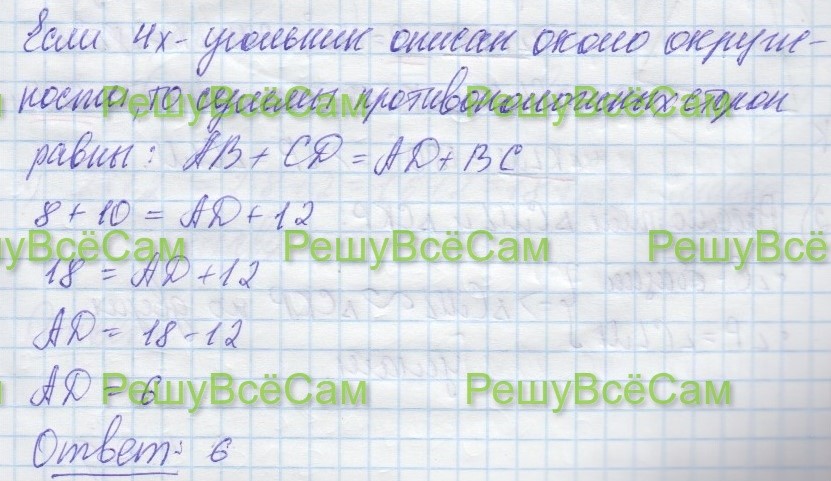 Если 4х-угольник описан около окруж-
ности, то суммы противоположных сторон
равны: AB + CD = AD + BC
8 + 10 = AD + 12
РешуВсёСам РешуВсёСам РешуВсёСам
18 = AD + 12
AD = 18 - 12
AD = 6
РешуВсёСам РешуВсёСам
Ответ: 6